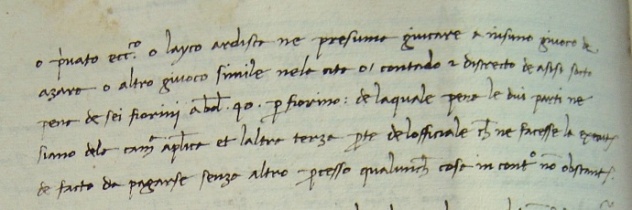 o p'vato ecc.co o layco ardisca ne presuma giucare a nisuno giuoco de
azara o altro giuoco simile nela cita o/ contado & districto de asisi sotto
pena de sei fiorini a bol. 40. p fiorino: de laquale pena le dui parti ne
siano dela cam.a ap.lica et laltra terza p.te de lofficiale ch ne facesse la
de facto da pagarse senza altro pcesso qualunch cosa in cont.o nō obstante.